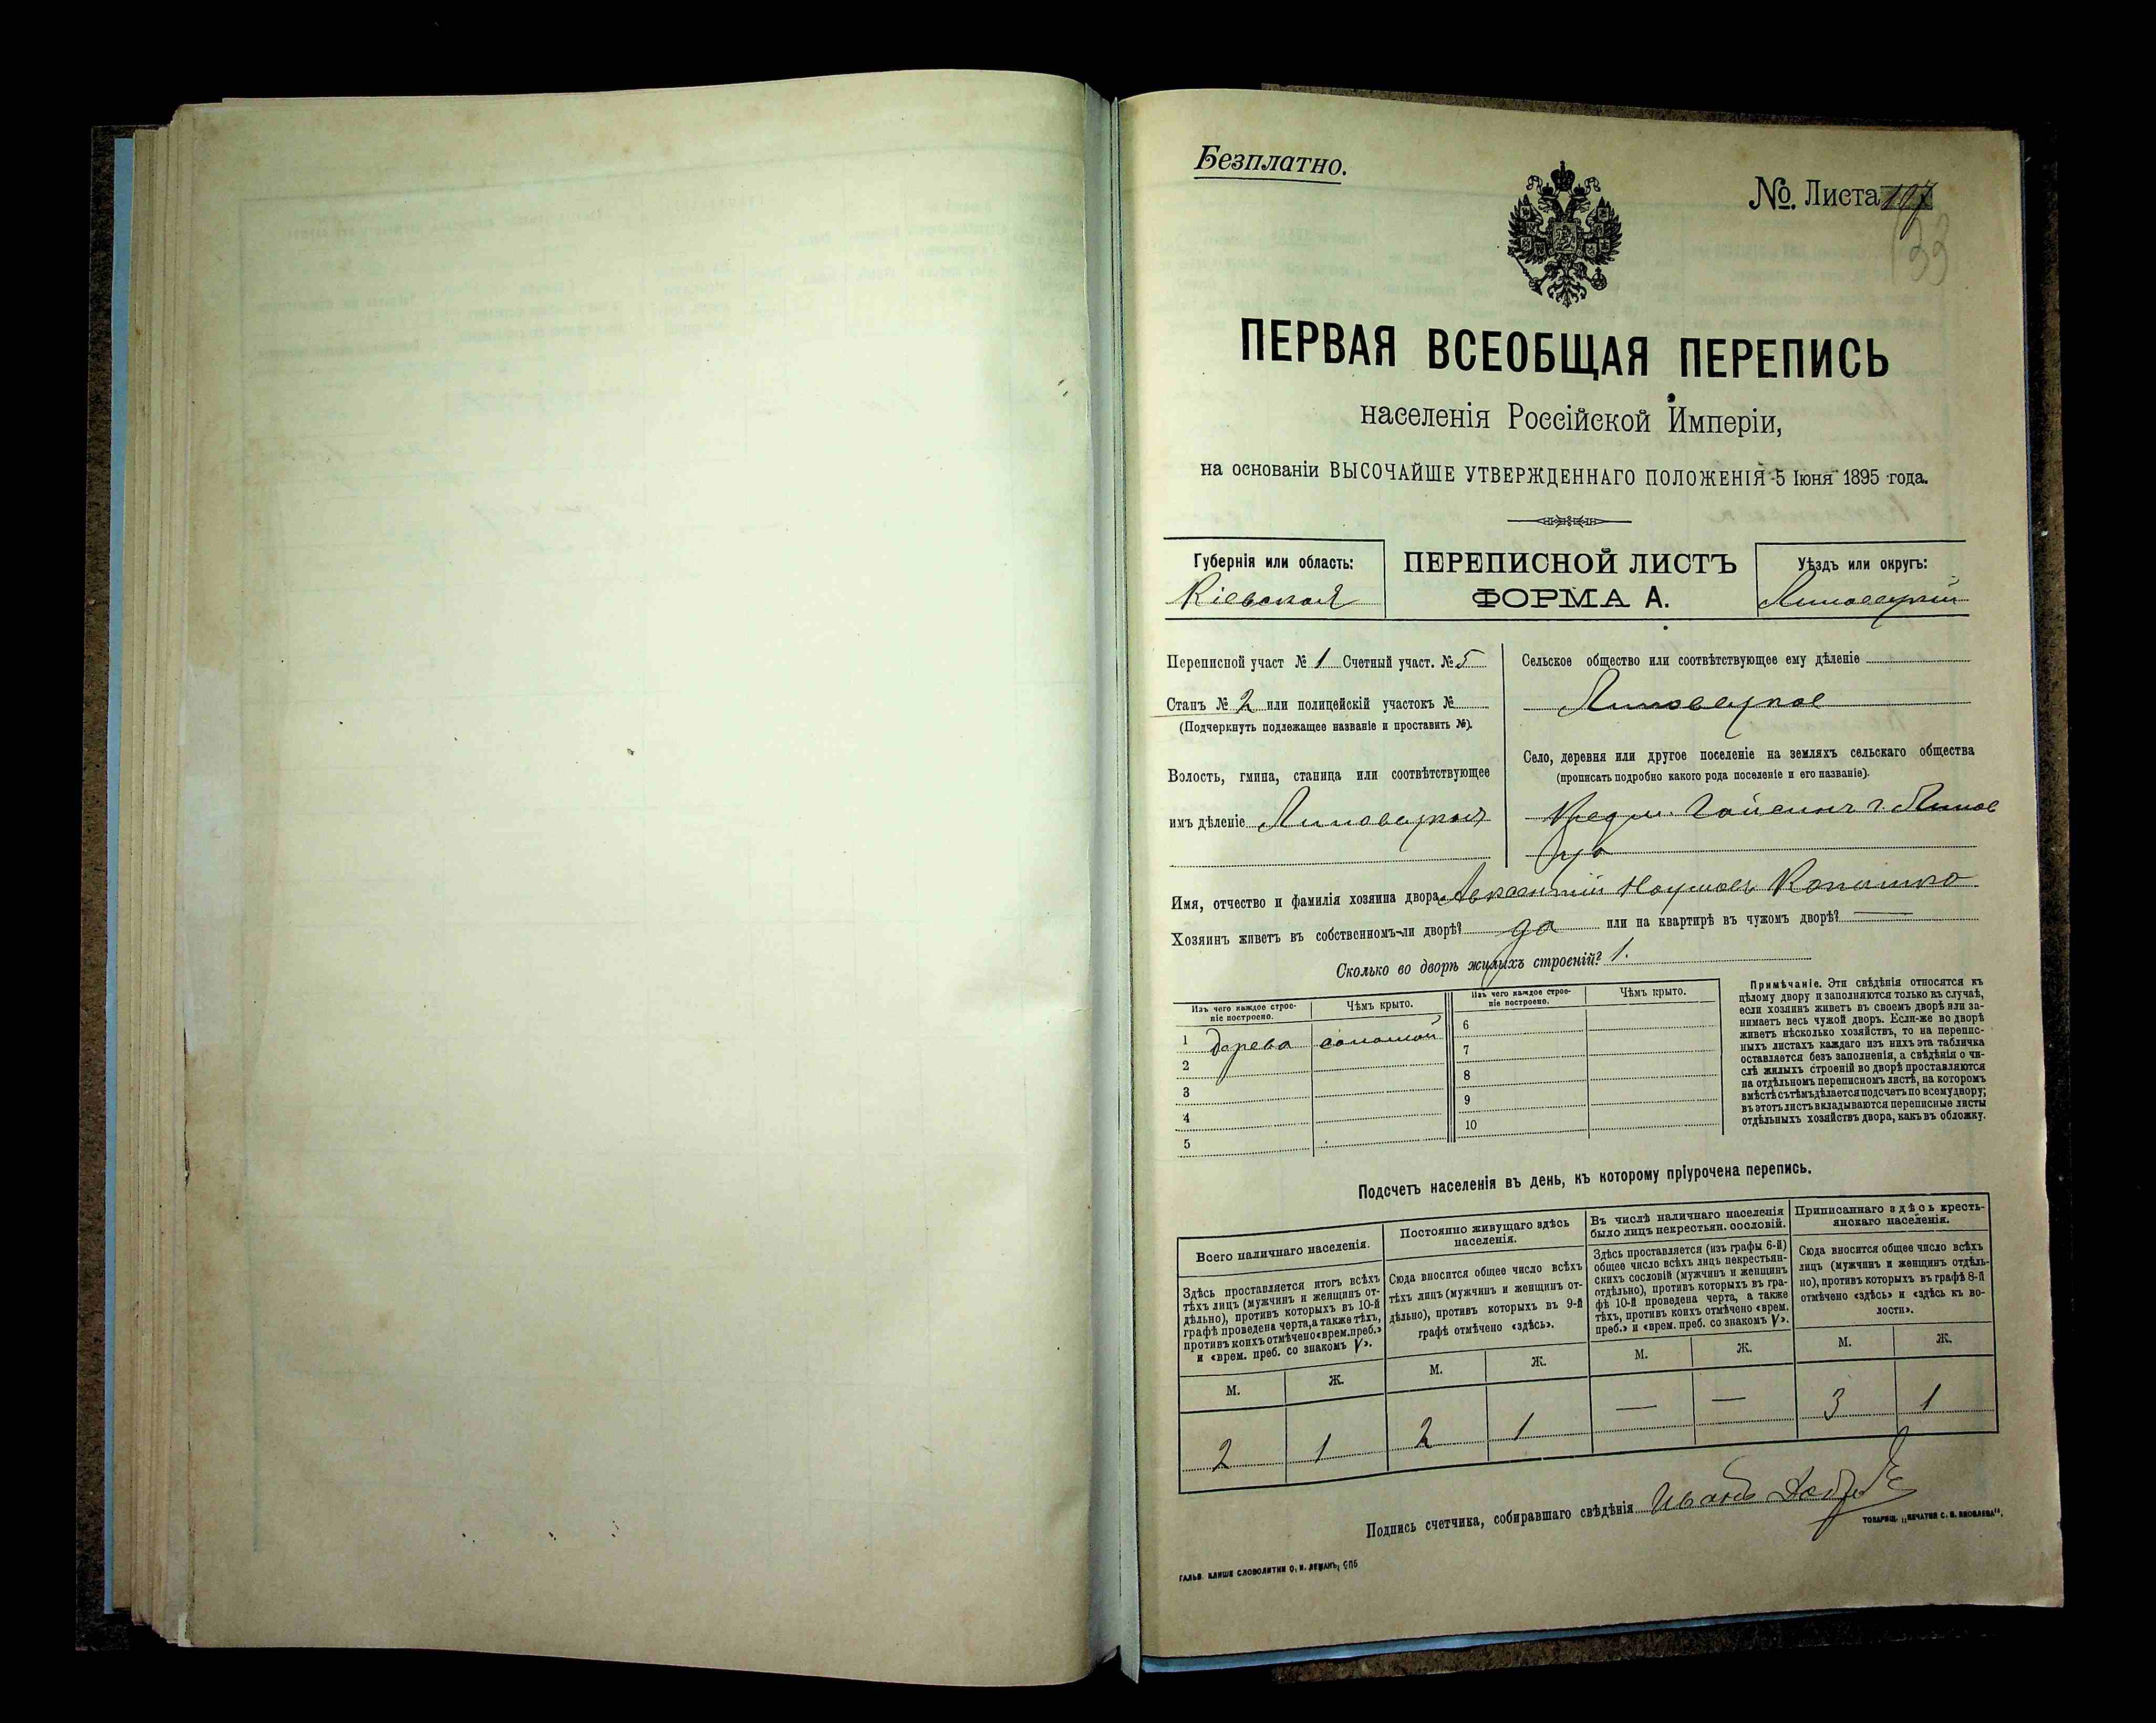 Безплатно.
№. Листа 107
133
ПЕРВАЯ ВСЕОБЩАЯ ПЕРЕПИСЬ
населенія Россійской Имперіи,
на основаніи ВЫСОЧАЙШЕ УТВЕРЖДЕННАГО ПОЛОЖЕНІЯ 5 Іюня 1895 года.
Губернія или область:
Кіевская
ПЕРЕПИСНОЙ ЛИСТЪ
ФОРМА А.
Уѣздъ или округъ:
Липовецкій
Переписной участ № 1 Счетный участ. № 5
Станъ № 2 или полицейскій участокъ №
(Подчеркнуть подлежащее названіе и проставить №).
Волость, гмина, станица или соотвѣтствующее
имъ дѣленіе Липовецкая
Сельское общество или соотвѣтствующее ему дѣленіе
Липовецкое
Село, деревня или другое поселеніе на земляхъ сельскаго общества
(прописать подробно какого рода поселеніе и его названіе).
Предм. г. Липов
ца
Имя, отчество и фамилія хозяина двора Авксентій Наумовъ
Хозяинъ живетъ въ собственномъ-ли дворѣ? да или на квартирѣ въ чужомъ дворѣ? —
Сколько во дворѣ жилыхъ строеній? 1.
Изъ чего каждое строе-
ніе построено.
Чѣмъ крыто.
Изъ чего каждое строе-
ніе построено.
Чѣмъ крыто.
1 дерева соломой
2
3
4
5
6
7
8
9
10
Примѣчаніе. Эти свѣдѣнія относятся къ
цѣлому двору и заполняются только въ случаѣ,
если хозяинъ живетъ въ своемъ дворѣ или за-
нимаетъ весь чужой дворъ. Если-же во дворѣ
живетъ нѣсколько хозяйствъ, то на перепис-
ныхъ листахъ каждаго изъ нихъ эта табличка
оставляется безъ заполненія, а свѣдѣнія о чи-
слѣ жилыхъ строеній во дворѣ проставляются
на отдѣльномъ переписномъ листѣ, на которомъ
вмѣстѣ съ тѣмъ дѣлается подсчетъ по всему двору;
въ этотъ листъ вкладываются переписные листы
отдѣльныхъ хозяйствъ двора, какъ въ обложку.
Подсчетъ населенія въ день, къ которому пріурочена перепись.
Всего наличнаго населенія.
Здѣсь проставляется итогъ всѣхъ
тѣхъ лицъ (мужчинъ и женщинъ от-
дѣльно), противъ которыхъ въ 10-й
графѣ проведена черта, а также тѣхъ,
противъ коихъ отмѣчено «врем. преб.»
и «врем. преб. со знакомъ V».
Постоянно живущаго здѣсь
населенія.
Сюда вносится общее число всѣхъ
тѣхъ лицъ (мужчинъ и женщинъ от-
дѣльно), противъ которыхъ въ 9-й
графѣ отмѣчено «здѣсь».
Въ числѣ наличнаго населенія
было лицъ некрестьян. сословій.
Здѣсь проставляется (изъ графы 6-й)
общее число всѣхъ лицъ некрестьян-
скихъ сословій (мужчинъ и женщинъ
отдѣльно), противъ которыхъ въ гра-
фѣ 10-й проведена черта, а также
тѣхъ, противъ коихъ отмѣчено «врем.
преб.» и «врем. преб. со знакомъ V».
Приписаннаго здѣсь кресть-
янскаго населенія.
Сюда вносится общее число всѣхъ
лицъ (мужчинъ и женщинъ отдѣль-
но), противъ которыхъ въ графѣ 8-й
отмѣчено «здѣсь» и «здѣсь къ во-
лости».
М. Ж. М. Ж. М. Ж. М. Ж.
2 1 2 1 — — 3 1
Подпись счетчика, собиравшаго свѣдѣнія Иванъ
ТОВАРИЩ. „ПЕЧАТНЯ С. П. ЯКОВЛЕВА".
ГАЛЬВ. КЛИШЕ СЛОВОЛИТНИ О. И. ЛЕМАНЪ, СПБ